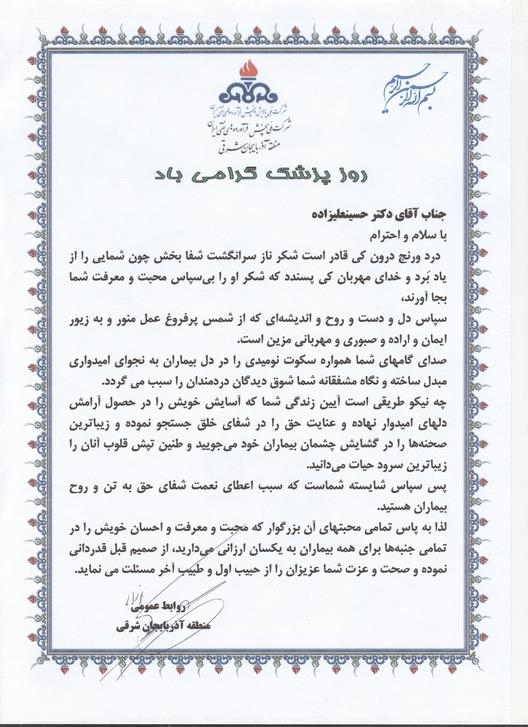 بسم الله الرحمن الرحیم
شرکت ملی پالایش و پخش فرآورده‌های نفتی ایران
شرکت ملی پخش فرآورده‌های نفتی ایران
منطقه آذربایجان شرقی
روز پزشک گرامی باد
جناب آقای دکتر حسینعلیزاده
با سلام و احترام
درد ورنج درون کی قادر است شکر ناز سرانگشت شفا بخش چون شمایی را از
یاد بَرد و خدای مهربان کی پسندد که شکر او را بی‌سپاس محبت و معرفت شما
بجا آورند،
سپاس دل و دست و روح و اندیشه‌ای که از شمس پرفروغ عمل منور و به زیور
ایمان و اراده و صبوری و مهربانی مزین است.
صدای گامهای شما همواره سکوت نومیدی را در دل بیماران به نجوای امیدواری
مبدل ساخته و نگاه مشفقانه شما شوق دیدگان دردمندان را سبب می گردد.
چه نیکو طریقی است آیین زندگی شما که آسایش خویش را در حصول آرامش
دلهای امیدوار نهاده و عنایت حق را در شفای خلق جستجو نموده و زیباترین
صحنه‌ها را در گشایش چشمان بیماران خود می‌جویید و طنین تپش قلوب آنان را
زیباترین سرود حیات می‌دانید.
پس سپاس شایسته شماست که سبب اعطای نعمت شفای حق به تن و روح
بیماران هستید.
لذا به پاس تمامی محبتهای آن بزرگوار که محبت و معرفت و احسان خویش را در
تمامی جنبه‌ها برای همه بیماران به یکسان ارزانی می‌دارید، از صمیم قبل قدردانی
نموده و صحت و عزت شما عزیزان را از حبیب اول و طبیب آخر مسئلت می نماید.
روابط عمومی
منطقه آذربایجان شرقی